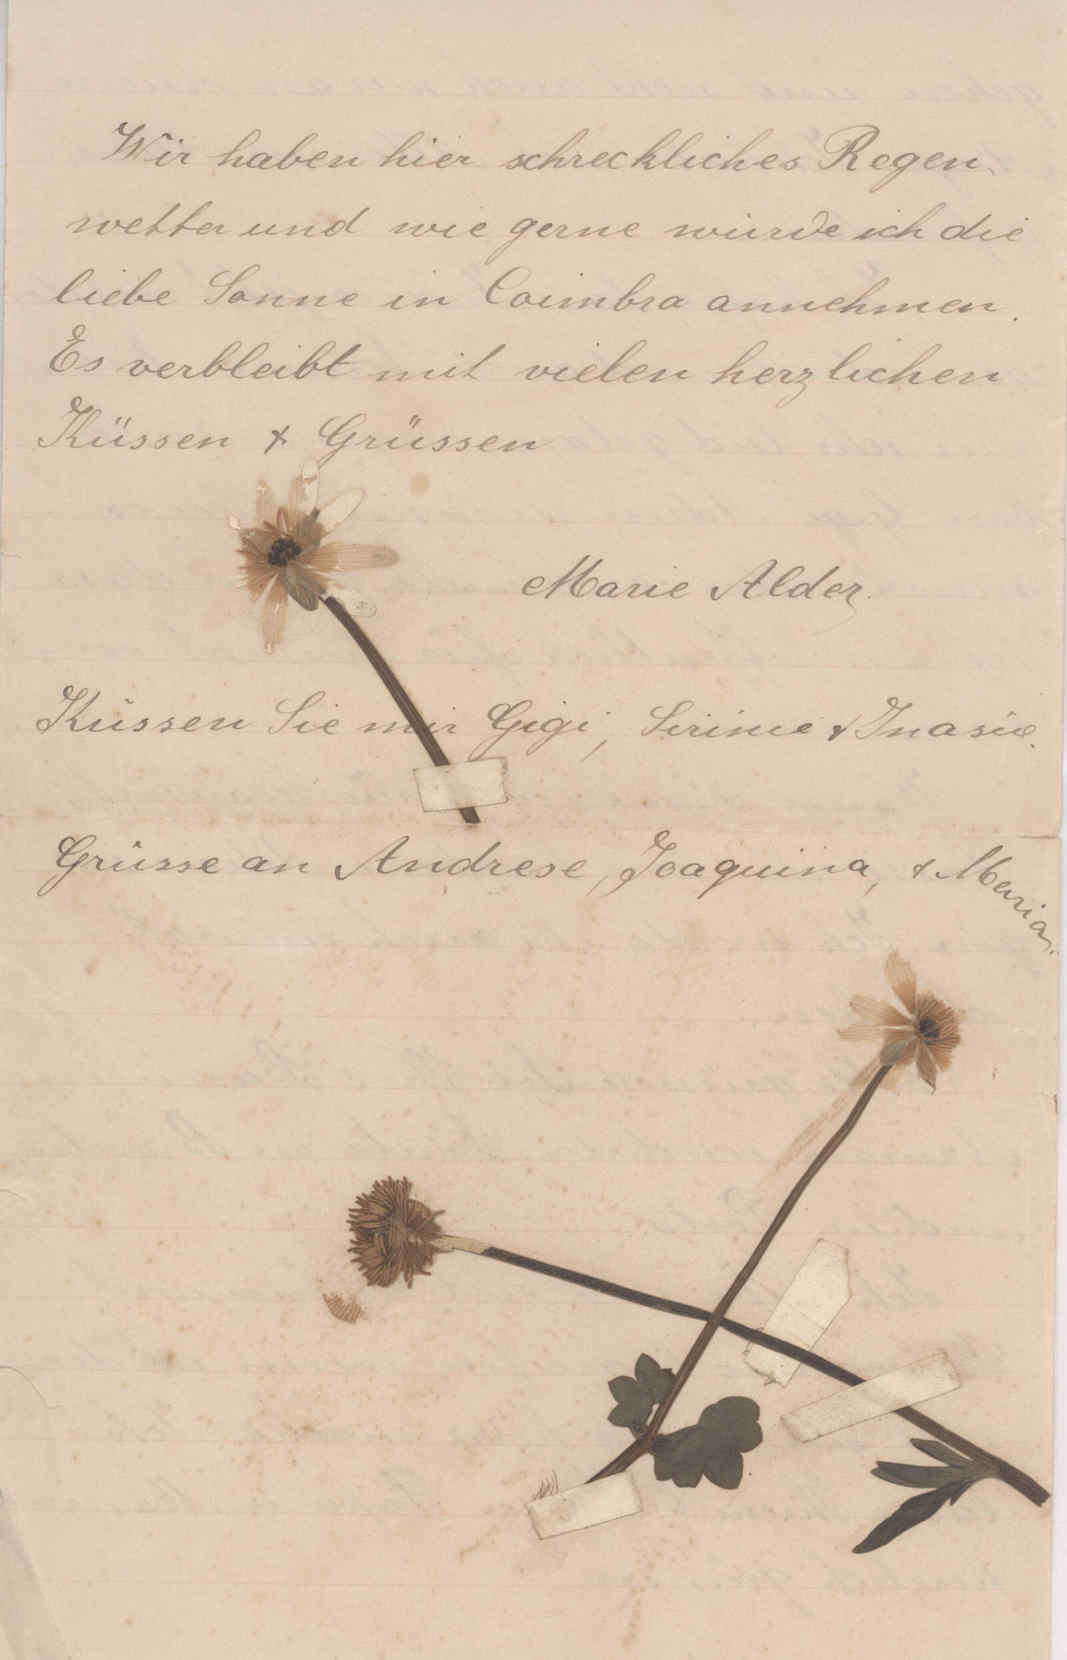 Wir haben hier schreckliches Regen-
wetter und wie gerne würde ich die
liebe Sonne in Coimbra annehmen.
Es verbleibt mit vielen herzlichen
Küssen & Grüssen
Marie Alder.
Küssen Sie mir Gigi, &
Grüsse an Andrese, Joaquina, & Maria.